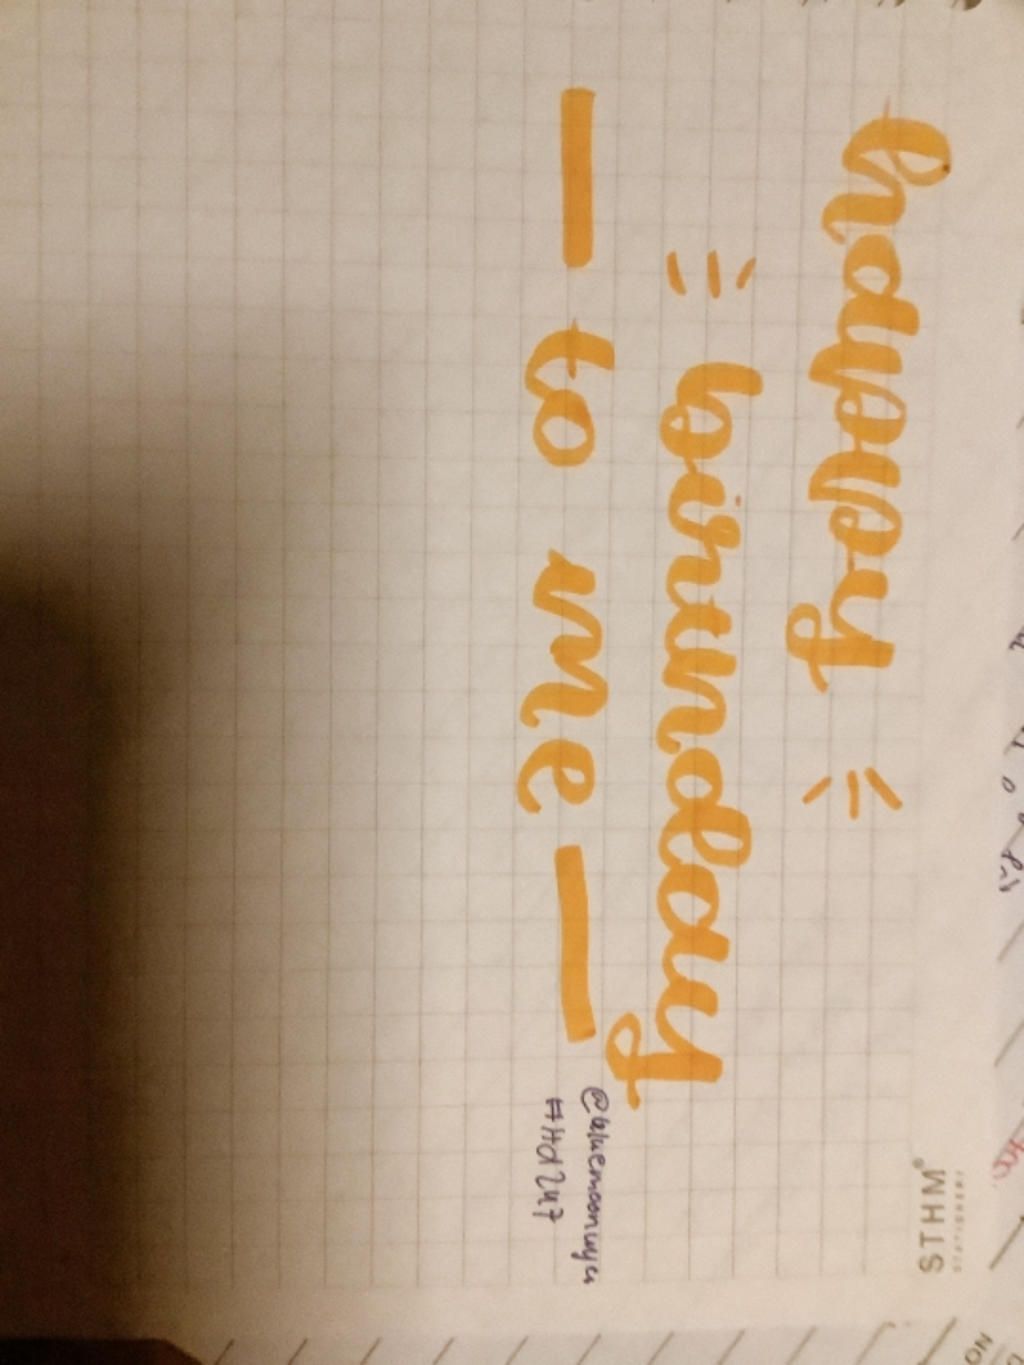 STHM
STATIONERY
happy
birthday
to me
#Hd247